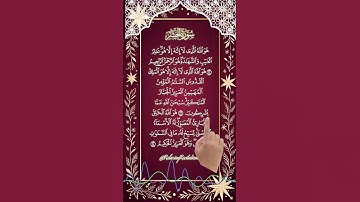 سورة الحشر
هو الله الذي لا إله إلا هو عالم
الغيب والشهادة هو الرحمن الرحيم
هو الله الذي لا إله إلا هو الملك
القدوس السلام المؤمن
المهيمن العزيز الجبار
المتكبر سبحن الله عما
يشركون هو الله الخالق
البارئ المصور له الأسماء
يسبح له ما في السموات
وهو العزيز الحكيم